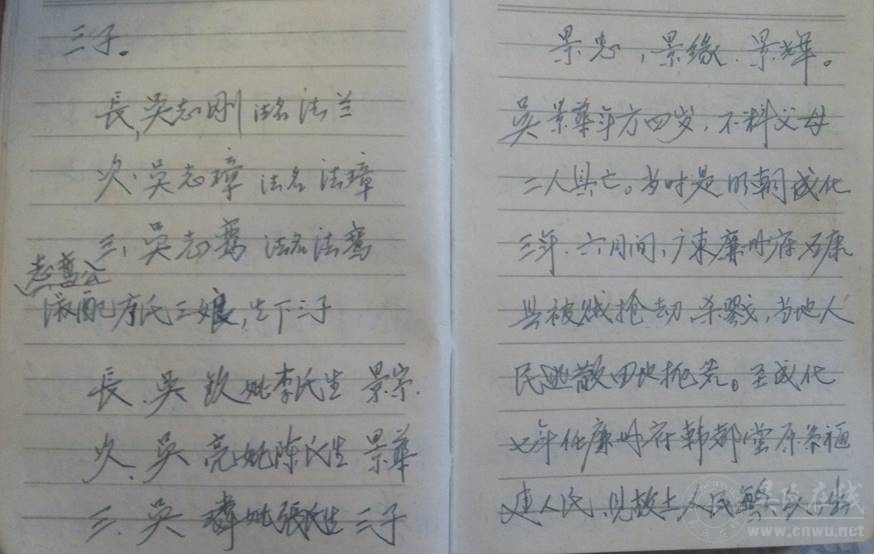 三子。
長,吳志刚 法名法兰
次,吳志璋 法名 法璋
三,吳志鸾 法名法鸾
志鸾公
淑配 氏三娘,生下三子
長.吳 钦妣李氏生 景崇.
次.吳 亮妣陈氏生 景華
三.吳 璘妣張氏生 三子
景忠,景缘.景輝。
吳景華年方四岁,不料父母
二人具亡。当时是明朝成化
三年.六月间,广東廉州府石康
县被贼抢劫.杀戮,当地人
民逃散田地抛荒。至成化
七年任廉州府韩都堂 福
建人氏,见故土人民
吳氏在线
www.cnwu.net